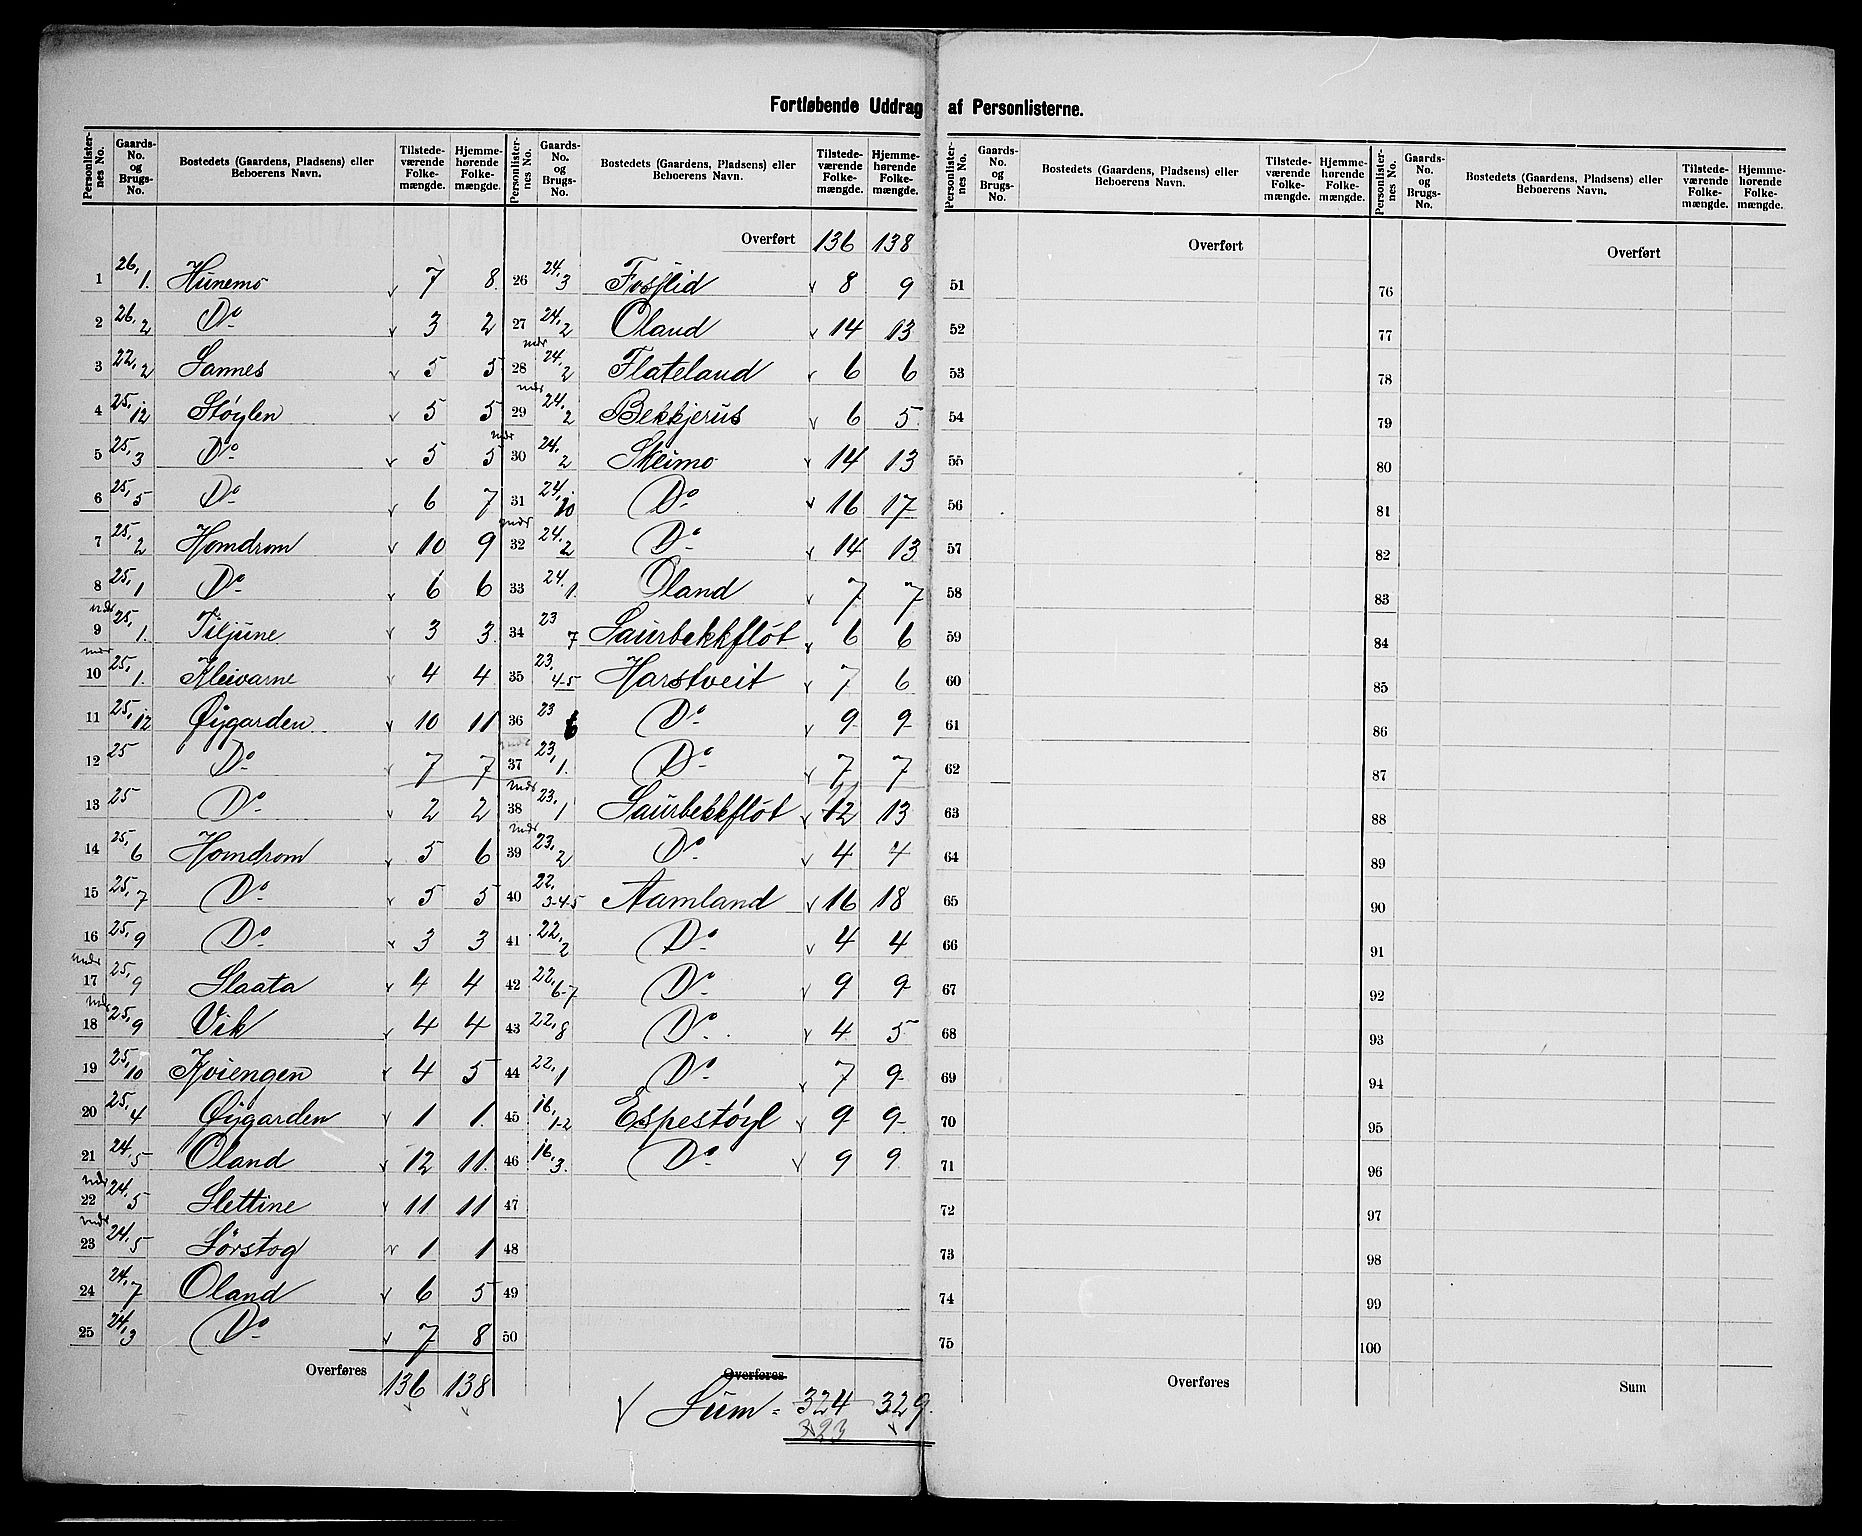 Fortløbende Uddrag af Personlisterne.
Personlisternes No. Gaards-No. og Brugs-No. Bostedets (Gaardens, Pladsens) eller Beboerens Navn. Tilstedeværende Folkemængde. Hjemmehørende Folkemængde.
1 26,1. Hunemo v 7 8
2 26,2 Do v 3 2
3 22,2 Sannes v 5 5
4 25,12 Støylen v 5 5
5 25,3 Do v 5 5
6 25,5 Do v 6 7
7 25,2 Homdrom v 10 9
8 25,1 Do v 6 6
ndr 9 25,1. Tiljune v 3 3
ndr 10 25,1. Kleivarne v 4 4
11 25,12 Øygarden v 10 11
12 25 Do v 7 7
13 25 Do v 2 2
14 25,6 Homdrom v 5 6
15 25,7 Do v 5 5
16 25,9 Do v 3 3
ndr 17 25,9 Slaata v 4 4
ndr 18 25,9 Vik v 4 4
19 25,10 Kviengen v 4 5
20 25,4 Øygarden v 1 1
21 24,5 Oland v 12 11
ndr 22 24,5 Slettine v 11 11
ndr 23 24,5 Sørstog v 1 1
24 24,7 Oland v 6 5
25 24,3 Do v 7 8
Overføres 136 138
Personlisternes No. Gaards-No. og Brugs-No. Bostedets (Gaardens, Pladsens) eller Beboerens Navn. Tilstedeværende Folkemængde. Hjemmehørende Folkemængde.
Overført 136 138
26 24,3 Foslid v 8 9
27 24,2 Oland v 14 13
ndr 28 24,2 Flateland v 6 6
ndr 29 24,2 Bekkjerus v 6 5
ndr 30 24,2 Skeimo v 14 13
31 24,10 Do v 16 17
ndr 32 24,2 Do v 14 13
33 24,1. Oland v 7 7
34 23 7 Saurbekkfløt v 6 6
35 23, 4-5 Harstveit v 7 6
36 23 6 Do v 9 9
ndr 37 23,1. Do v 7 7
ndr 38 23,1 Saurbekkfløt v 12 13
ndr 39 23,2 Do v 4 4
40 22, 3-4-5 Aamland v 16 18
41 22,2 Do v 4 4
42 22,6-7 Do v 9 9
43 22,8 Do v 4 5
44 22,1 Do v 7 9
45 16, 1-2 Espestøyl v 9 9
46 16,3. Do v 9 9
47
48
49
50
Overføres
v Sum = 324 329.
323
Personlisternes No. Gaards-No. og Brugs-No. Bostedets (Gaardens, Pladsens) eller Beboerens Navn. Tilstedeværende Folkemængde. Hjemmehørende Folkemængde.
Overført
51
52
53
54
55
56
57
58
59
60
61
62
63
64
65
66
67
68
69
70
71
72
73
74
75
Overføres
Personlisternes No. Gaards-No. og Brugs-No. Bostedets (Gaardens, Pladsens) eller Beboerens Navn. Tilstedeværende Folkemængde. Hjemmehørende Folkemængde.
Overført
76
77
78
79
80
81
82
83
84
85
86
87
88
89
90
91
92
93
94
95
96
97
98
99
100
Sum